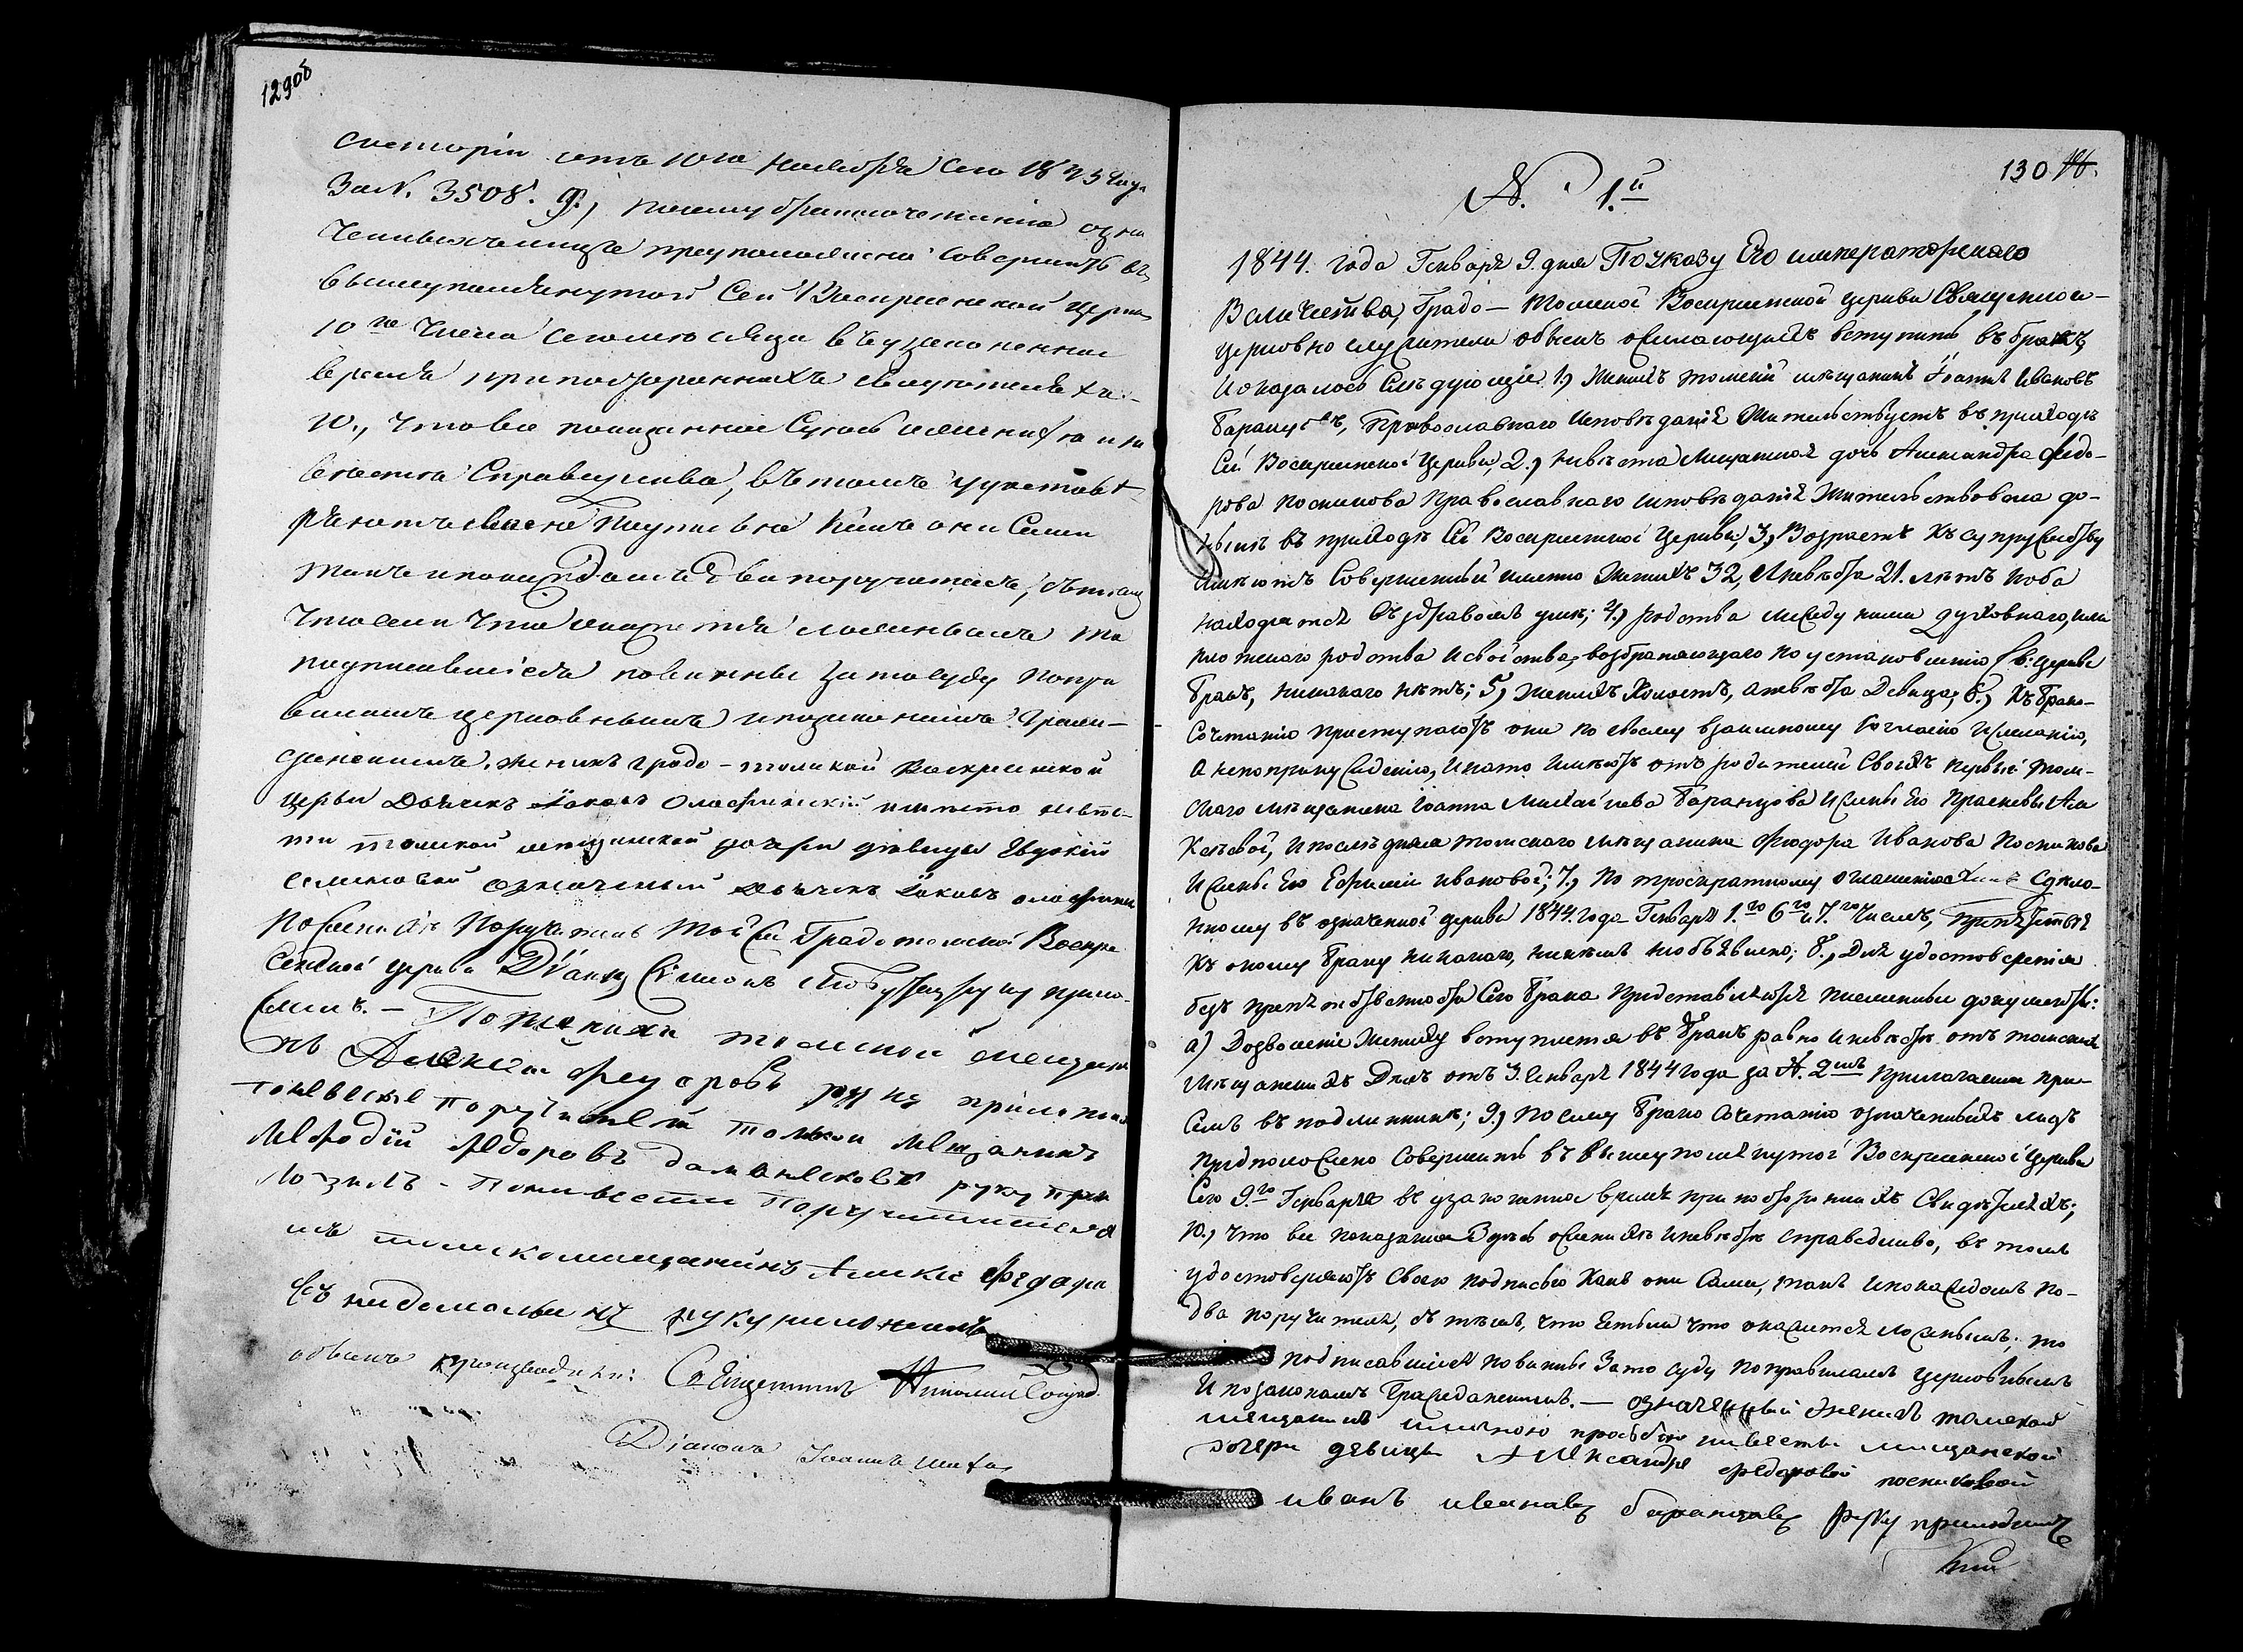 129об
систоріи отъ 10го Ноября сего 1843 года
За N. 3508. 9., посему бракосочетаніе озна
ченныхъ лицъ предположено совершить въ
вышеупомянутой Сей Воскресенской церкви
10го числа сего мѣсяца въ узаконенное
время при постороннихъ свидѣтеляхъ.
10., Что все показанное Здѣсь о женихѣ и не
вѣстѣ Справедливо, въ томъ удостовѣ
ряютъ своею Подписью какъ они Сами
такъ и по каждомъ два поручителя, съ тѣмъ
что если что окажется ложнымъ то
подписавшіеся повинны за то суду по пра
виламъ церковнымъ и по законамъ Граж-
данскимъ. женихъ градо-томской Воскресенской
церкви Дьячекъ Іаковъ невѣс-
ты томской мещанской дочери девицы Евдокіи
означеный дьячекъ Іаковъ
По женихѣ Поручитель той же Градотомской Воскре
сенской церкви Діаконъ Симеонъ руку прило-
жилъ. — По женихѣ томской мещани
нъ Алексей Федоровъ руку приложилъ
по невесте поручителем томской мещанинъ
Мефодій Федоровъ руку при
ложилъ - По невѣсти Поручителемъ
томской мещанинъ Алексе Федоро
въ руку приложилъ
обыскъ производили: Священникъ Николай
Діаконъ Іоаннъ
130
N. 1.й
1844. года Генваря 9. дня По Указу Его императорскаго
Величества, Градо-Томской Воскресенской церкви Священно и-
церковно служители обыскъ о желающихъ вступить въ бракъ,
и оказалось Слѣдующіе: 1.) Женихъ томскій мѣщанинъ Іоаннъ Ивановъ
Баранцовъ, Православнаго исповѣданія Жительствуетъ въ приходѣ
Сей Воскресенской Церкви, 2.) Невѣста Мещанская дочь Александра Федо-
рова Посникова Православнаго исповѣданія Жительствовала до-
нынѣ въ приходѣ Сей Воскресенской Церкви, 3.) Возрастъ къ супружеству
имѣютъ Совершенный именно Женихъ 32, а невѣста 21. лѣтъ и оба
находятся въ здравомъ умѣ; 4.) родства между ними духовнаго, или
плотскаго родства и свойства, возбраняющаго по установленію Св: церкви
бракъ, никакого нѣтъ; 5.) женихъ Холостъ, а невѣста Девица; 6.) къ брако-
Сочетанію приступаютъ они по своему взаимному согласію и желанію,
а не по принужденію, и на то имѣютъ отъ родителей Своихъ первый том-
скаго мѣщанина Іоанна Михайлова Баранцова и жены Его Прасковьи Але
ксѣевой, и послѣдняя томскаго мѣщанина Феодора Иванова Посникова
и жены Его Ефиміи ивановой; 7.) по троекратному оглашенію Сдѣла-
нному въ означенной церкви 1844. года Генваря 1.го 6.го и 7.го Числъ, препятствія
къ оному браку никакого, никѣмъ не объявлено; 8., Для удостовѣренія
безъ препятственности Сего брака Представляются писменные документы:
а) Дозволеніе Жениху вступить въ бракъ равно и невѣстѣ отъ томскихъ
мѣщанскихъ Дѣлъ отъ 3. Генваря 1844 года за N. 2мъ прилагаемъ при-
Семъ въ подлинникѣ; 9.) По сему брако Сочетанію означенныхъ лицъ
предположено Совершить въ вышеупомянутой Воскресенской Церкви
Сего 9го Генваря въ узаконенное время при постороннихъ Свидѣтеляхъ;
10., что все показанное Здѣсь о женихѣ и невѣстѣ справедливо, въ томъ
удостовѣряютъ своею подписью какъ они Сами, такъ и по каждомъ по-
два поручителя, съ тѣмъ, что Естьли что окажется ложнымъ, то
подписавшіеся повинны За то суду по правиламъ церковнымъ
и по законамъ Гражданскимъ. — означенный Женихъ томской
мещанинъ и личною прозбою невесты мещанской
дочери девицы Александры Федоровой посниковой
иванъ ивановъ баранцовъ руку приложилъ